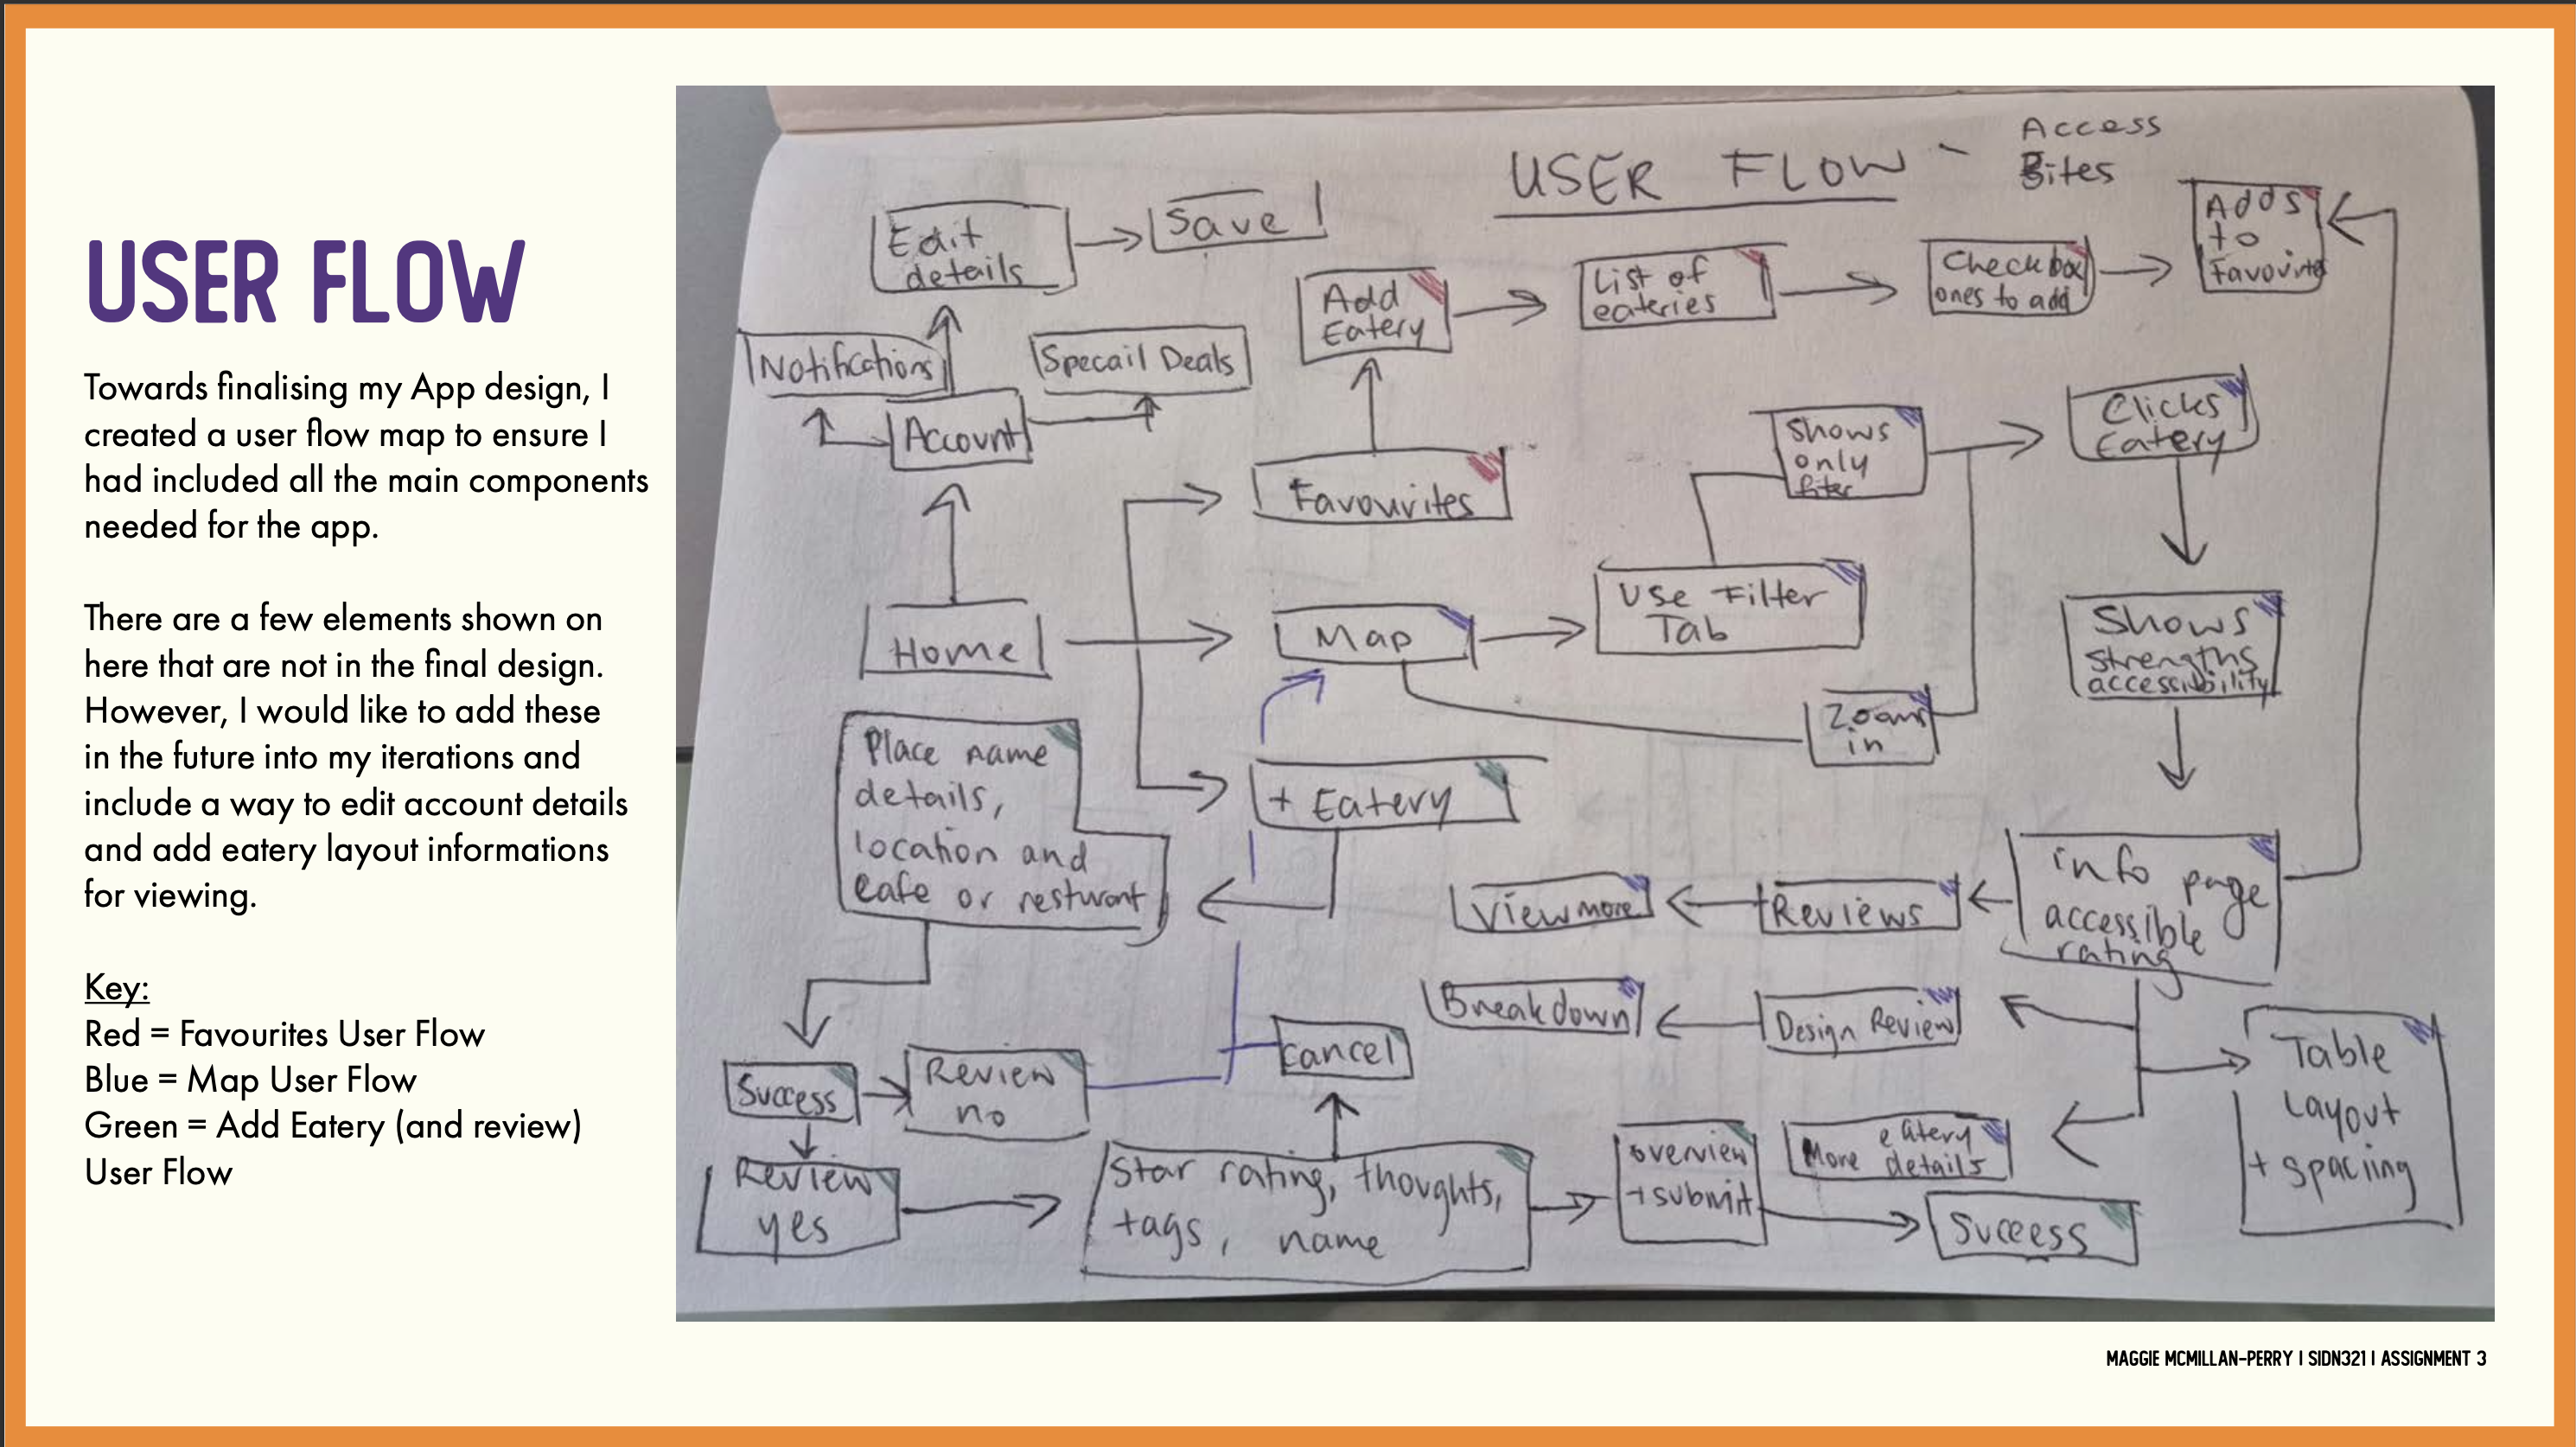 USER FLOW
Towards finalising my App design, I
created a user flow map to ensure I
had included all the main components
needed for the app.
There are a few elements shown on
here that are not in the final design.
However, I would like to add these
in the future into my iterations and
include a way to edit account details
and add eatery layout informations
for viewing.
Key:
Red = Favourites User Flow
Blue = Map User Flow
Green = Add Eatery (and review)
User Flow
USER FLOW -
Access
Bites
Edit
details
Save
Notifications
Specail Deals
Account
Home
Add
Eatery
List of
eateries
Checkbox
ones to add
Adds
to
Favourites
Favourites
Shows
only
Clicks
Eatery
Map
Use Filter
Tab
Zooms
in
Shows
strengths
accessibility
+ Eatery
Place name
details,
location and
cafe or resturant
info page
accessible
rating
Reviews
View more
Design Review
Breakdown
Table
Layout
+ spaciing
eatery
More details
Success
Review
no
cancel
Review
yes
Star rating, thoughts,
tags, name
overview
+submit
Success
MAGGIE MCMILLAN-PERRY | SIDN321 | ASSIGNMENT 3